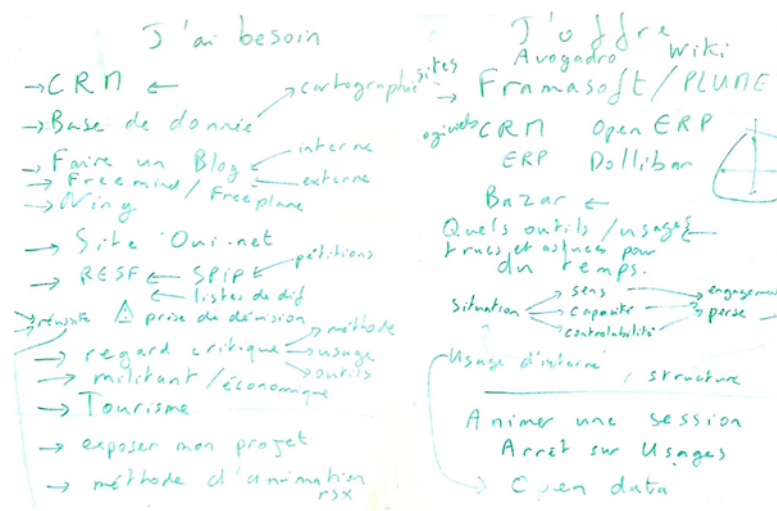 J'ai besoin
→ CRM ←
→ Base de donnée → cartographie
→ Faire un Blog ← interne
← externe
→ Freemind / Freeplane
→ Ning
→ Site Oui.net
→ RESF ← SPIP ← pétitions
← listes de dif
→ réussite ⚠ prise de démision
→ regard critique → méthode
→ usage
→ outils
→ militant / économique
→ Tourisme
→ exposer mon projet
→ méthode d'animation
rsx
J'offre
Avogadro Wiki
sites
→ Framasoft / PLUME
ogiciels CRM Open ERP
ERP Dollibar
Bazar ←
Quels outils / usages ←
trucs et astuces pour
du temps.
situation → sens → engagement
→ capacité → perse
→ controlabilité
Usage d'interne
/ structure
Animer une session
Arrêt sur Usages
→ Open data